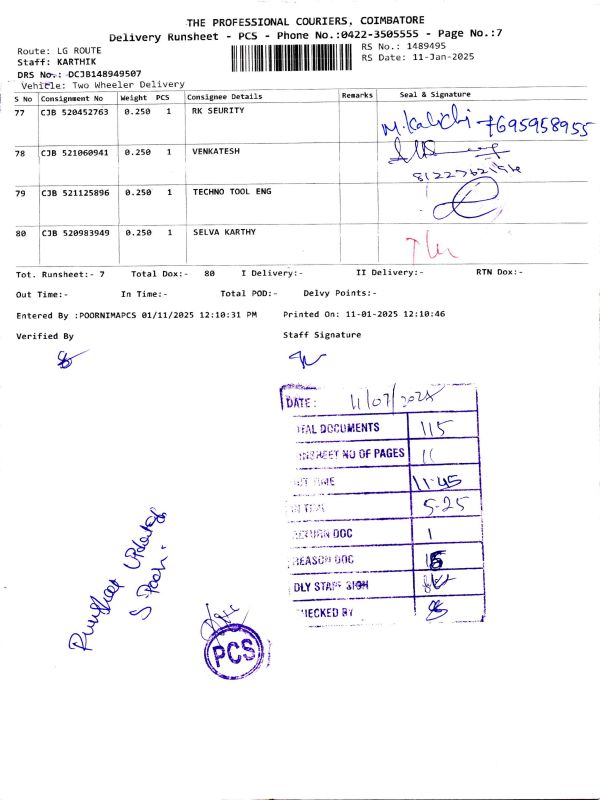 THE PROFESSIONAL COURIERS, COIMBATORE
Delivery Runsheet - PCS - Phone No.:0422-3505555 - Page No.:7
Route: LG ROUTE
RS No.: 1489495
Staff: KARTHIK
RS Date: 11-Jan-2025
DRS No.: DCJB148949507
Vehicle: Two Wheeler Delivery
S No Consignment No Weight PCS Consignee Details Remarks Seal & Signature
77 CJB 520452763 0.250 1 RK SEURITY
78 CJB 521060941 0.250 1 VENKATESH
79 CJB 521125896 0.250 1 TECHNO TOOL ENG
80 CJB 520983949 0.250 1 SELVA KARTHY
Tot. Runsheet:- 7 Total Dox:- 80 I Delivery:- II Delivery:- RTN Dox:-
Out Time:- In Time:- Total POD:- Delvy Points:-
Entered By :POORNIMAPCS 01/11/2025 12:10:31 PM Printed On: 11-01-2025 12:10:46
Verified By Staff Signature
DATE :
TAL DOCUMENTS 115
NO OF PAGES 11
11-45
IN TIME 5-25
RETURN DOC 1
REASON DOC
DLY STAFF SIGN
HECKED BY
PCS